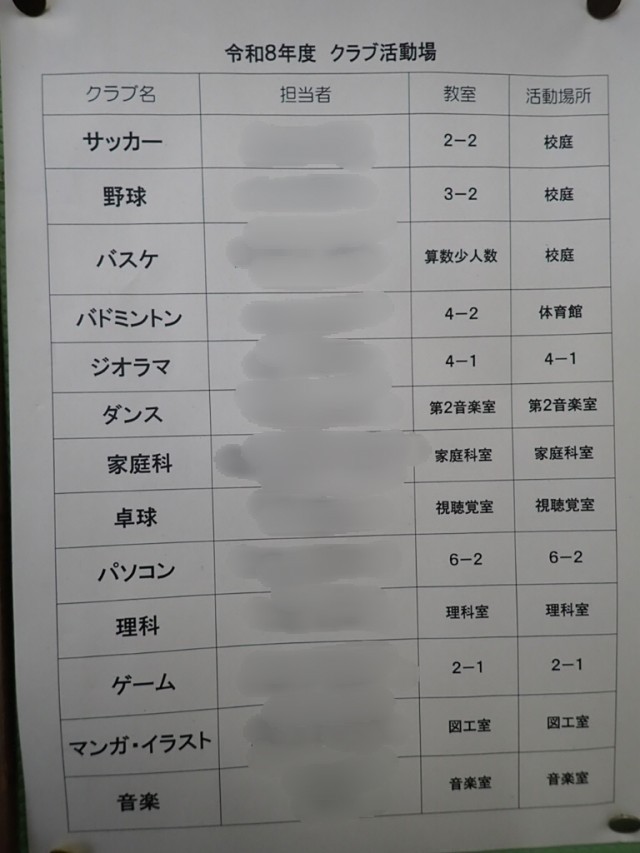 令和8年度 クラブ活動場
クラブ名 担当者 教室 活動場所
サッカー 2-2 校庭
野球 3-2 校庭
バスケ 算数少人数 校庭
バドミントン 4-2 体育館
ジオラマ 4-1 4-1
ダンス 第2音楽室 第2音楽室
家庭科 家庭科室 家庭科室
卓球 視聴覚室 視聴覚室
パソコン 6-2 6-2
理科 理科室 理科室
ゲーム 2-1 2-1
マンガ・イラスト 図工室 図工室
音楽 音楽室 音楽室